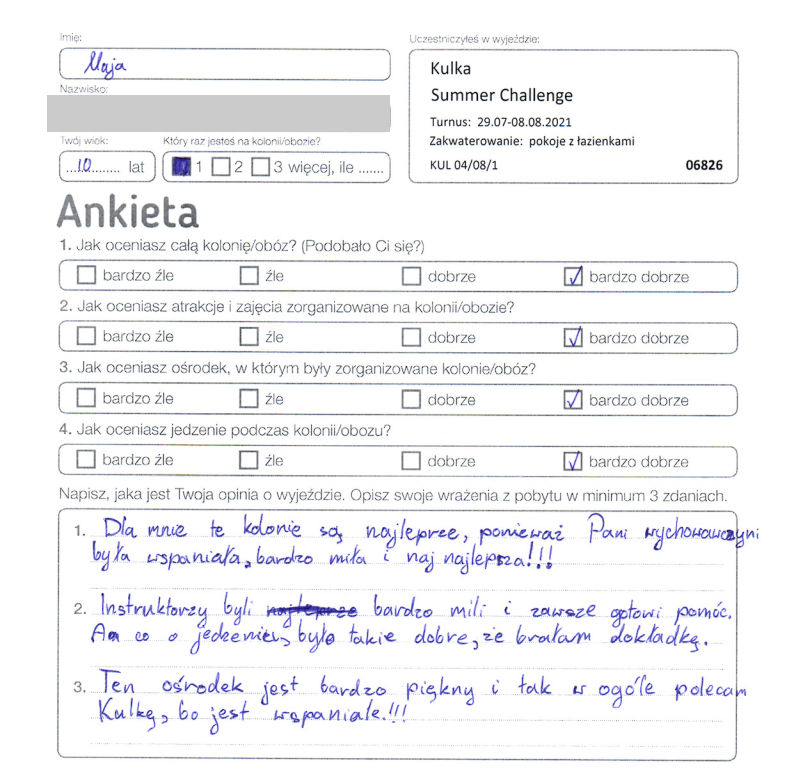 Imię:
Maja
Nazwisko:
Twój wiek:
...10........ lat
Który raz jesteś na kolonii/obozie?
1 2 3 więcej, ile .......
Uczestniczyłeś w wyjeździe:
Kulka
Summer Challenge
Turnus: 29.07-08.08.2021
Zakwaterowanie: pokoje z łazienkami
KUL 04/08/1 06826
Ankieta
1. Jak oceniasz całą kolonię/obóz? (Podobało Ci się?)
bardzo źle źle dobrze bardzo dobrze
2. Jak oceniasz atrakcje i zajęcia zorganizowane na kolonii/obozie?
bardzo źle źle dobrze bardzo dobrze
3. Jak oceniasz ośrodek, w którym były zorganizowane kolonie/obóz?
bardzo źle źle dobrze bardzo dobrze
4. Jak oceniasz jedzenie podczas kolonii/obozu?
bardzo źle źle dobrze bardzo dobrze
Napisz, jaka jest Twoja opinia o wyjeździe. Opisz swoje wrażenia z pobytu w minimum 3 zdaniach.
1. Dla mnie te kolonie są najleprze, ponieważ Pani wychowawczyni
była wspaniała, bardzo miła i naj najlepsza!!!
2. Instruktorzy byli bardzo mili i zawsze gotowi pomóc.
A co o jedzeniu, było takie dobre, że brałam dokładkę.
3. Ten ośrodek jest bardzo piękny i tak w ogóle polecam
Kulkę, bo jest wspaniale.!!!